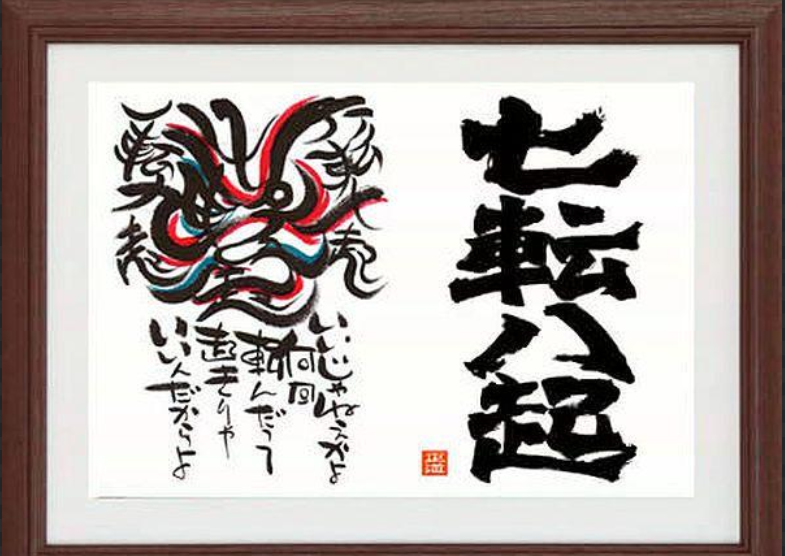 七転八起
いいじゃねえかよ
何回
転んだって
起きりゃ
いいんだからよ